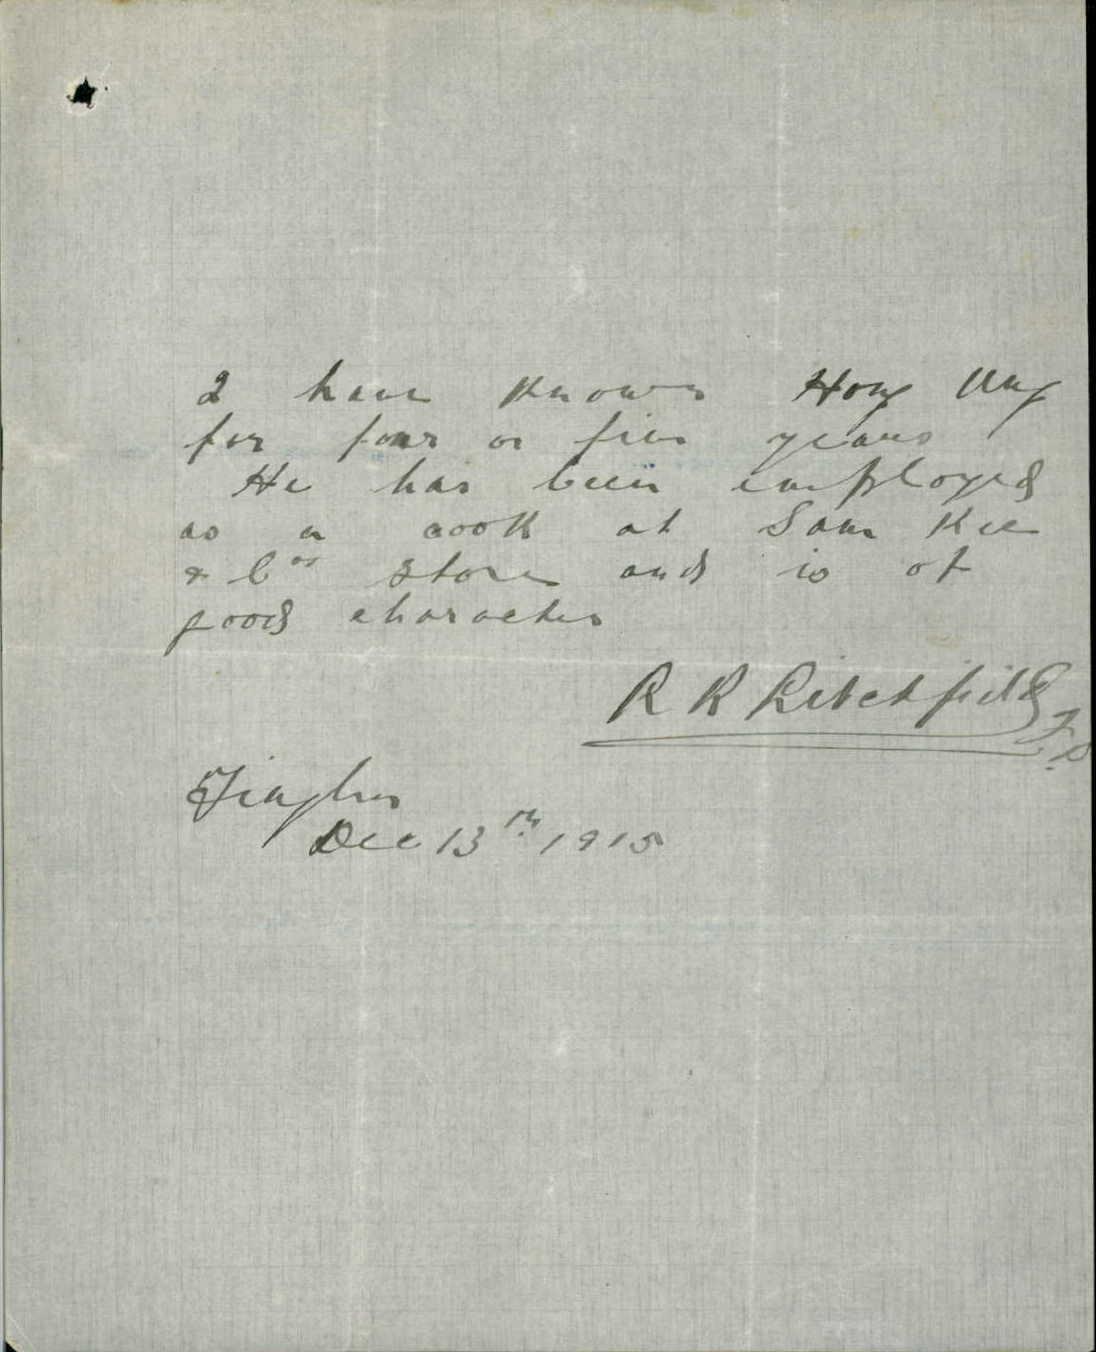 I have known Hong Ung
for four or five years
He has been employed
as a cook at Sam Kee
& Cos store and is of
good character
R R
Tingha
Dec 13th 1915